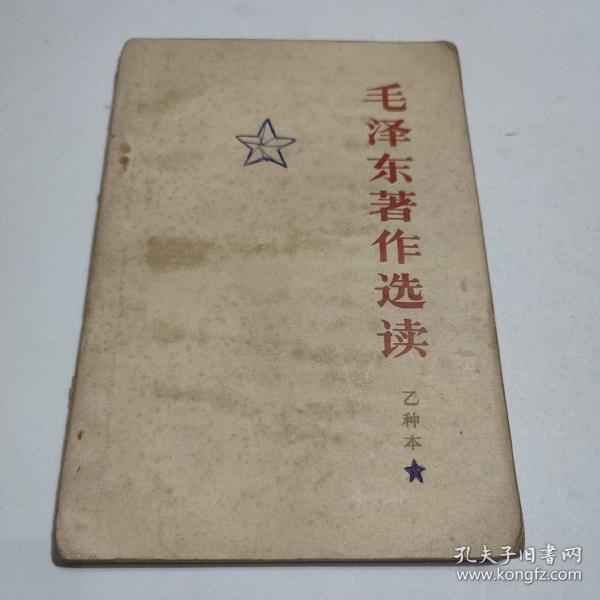 毛泽东著作选读
乙种本
孔夫子旧書网
www.kongfz.com